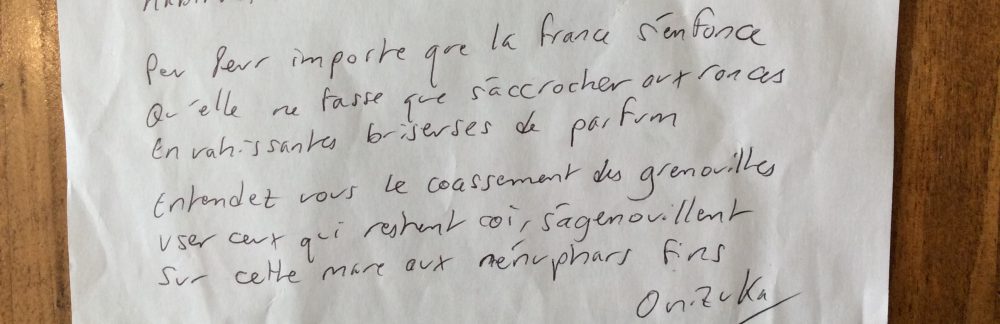 Peu leur importe que la france s'enfonce
Qu'elle ne fasse que s'accrocher aux ronces
Envahissantes briseuses de parfum
Entendez vous le coassement des grenouilles
User ceux qui restent coi, s'agenouillent
Sur cette mare aux nénuphars fins
Onizuka